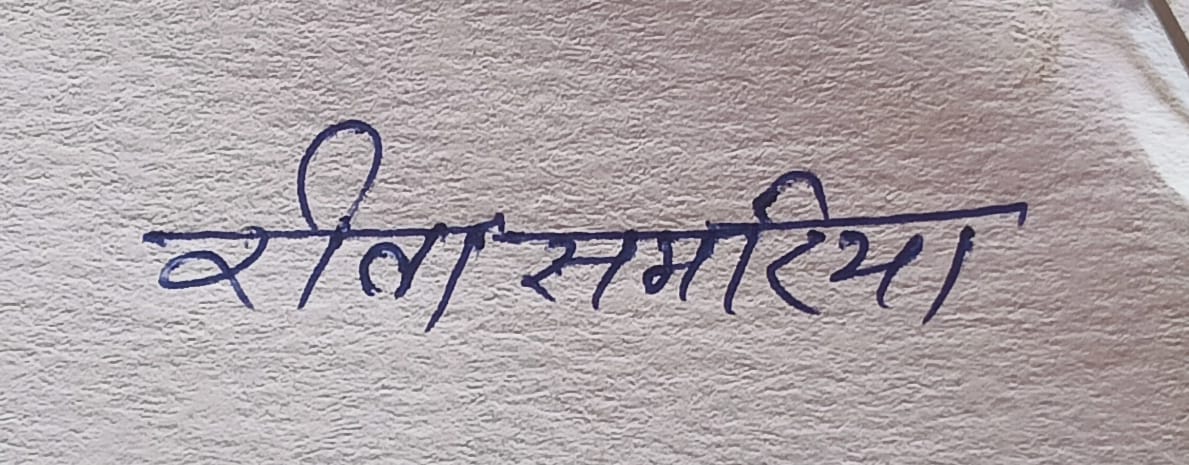 रीता समारिया